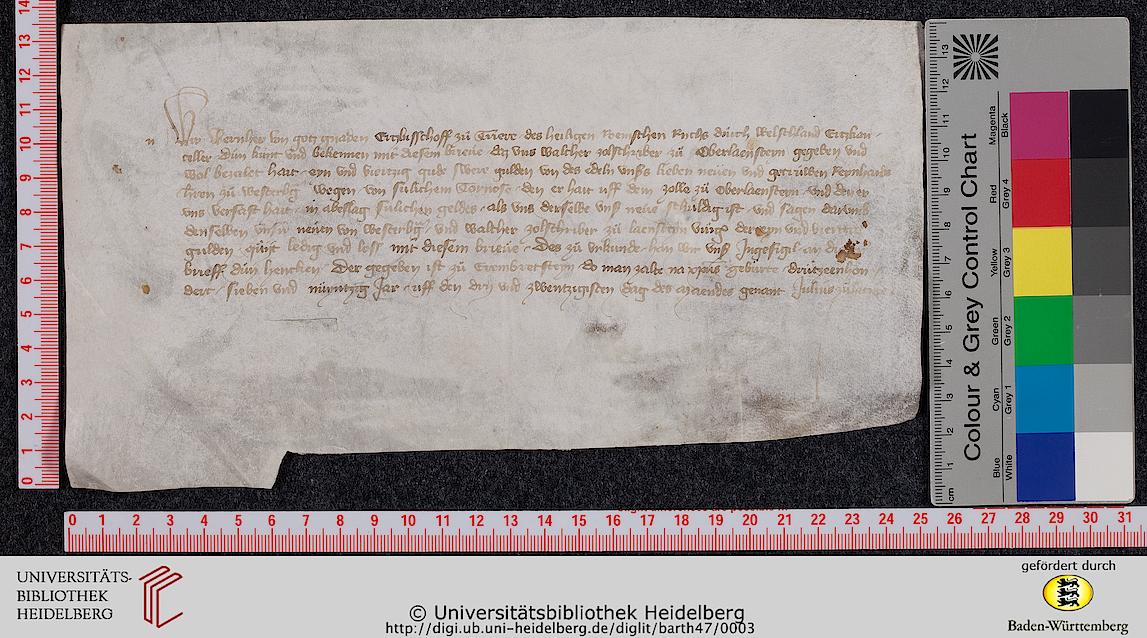 Wir Wernher von gotz gnaden Ertzbisschoff zu Triere des heiligen Roemschen Richs durch Welschland Ertzkan-
celler dun kunt vnd bekennen mit diesem brieue daz vns Walther zolschriber zu Oberlaenstern gegeben vnd
wol betzalet hait eyn vnd viertzig gude swere gulden von des edeln vnsers lieben neuen vnd getruwen Reynharts
hern zu Westerburg wegen von sulichem Tornose den er hait uff dem zolle zu Oberlaenstern vnd den er
vns versast hait in abeslag sulichen geldes als vns derselbe vnser neue schuldig ist vnd sagen darumb
denselben vnsern neuen von Westerburg vnd Walther zolschriber zu laenstern vurg der eyn vnd viertzig
gulden quijt ledig vnd loss mit diesem brieue Des zu vrkunde han wir vnser Ingesigel an
brieff dun hencken Der gegeben ist zu Erembretstein do man zalte na xpus geburte druitzeenhon-
dert sieben vnd nuyntzig Jar uff den drij vnd zwentzigisten dag des maendes genant Julius zu latine
14
13
12
11
10
9
8
7
6
5
4
3
2
1
0
0 1 2 3 4 5 6 7 8 9 10 11 12 13 14 15 16 17 18 19 20 21 22 23 24 25 26 27 28 29 30 31
Colour & Grey Control Chart
Blue Cyan Green Yellow Red Magenta
White Grey 1 Grey 2 Grey 3 Grey 4 Black
cm 1 2 3 4 5 6 7 8 9 10 11 12 13
UNIVERSITÄTS-
BIBLIOTHEK
HEIDELBERG
© Universitätsbibliothek Heidelberg
http://digi.ub.uni-heidelberg.de/diglit/barth47/0003
gefördert durch
Baden-Württemberg